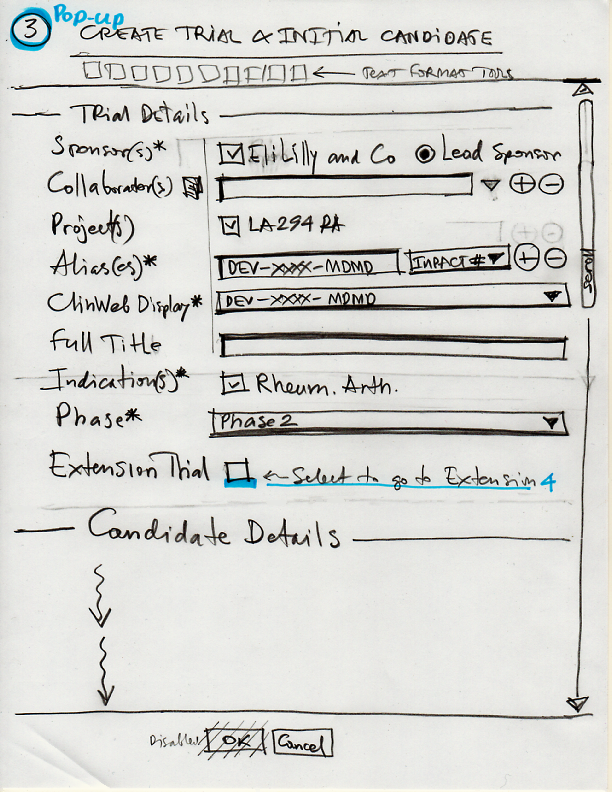 3 Pop-up
CREATE TRIAL & INITIAL CANDIDATE
← TEXT FORMAT TOOLS
Trial Details
Sponsor(s)* Eli Lilly and Co Lead Sponsor
Collaborator(s)
Project(s) LA294 RA
Alias(es)* DEV-XXXX-MDMD IMPACT#
ClinWeb Display* DEV-XXXX-MDMD
Full Title
Indication(s)* Rheum. Arth.
Phase* Phase 2
Extension Trial ← Select to go to Extension 4
Candidate Details
Scroll
Disabled OK Cancel